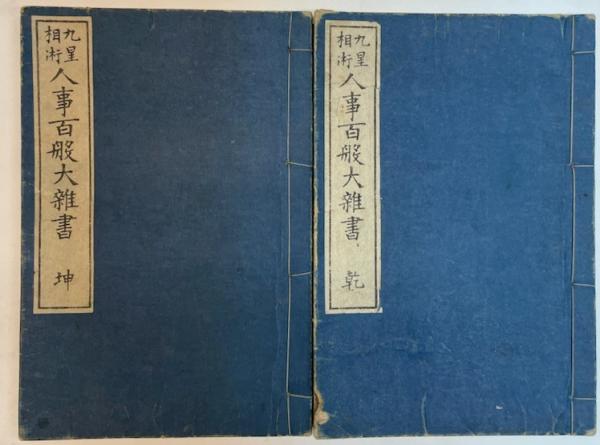 九星
相術
人事百般大雜書
乾
九星
相術
人事百般大雜書
坤